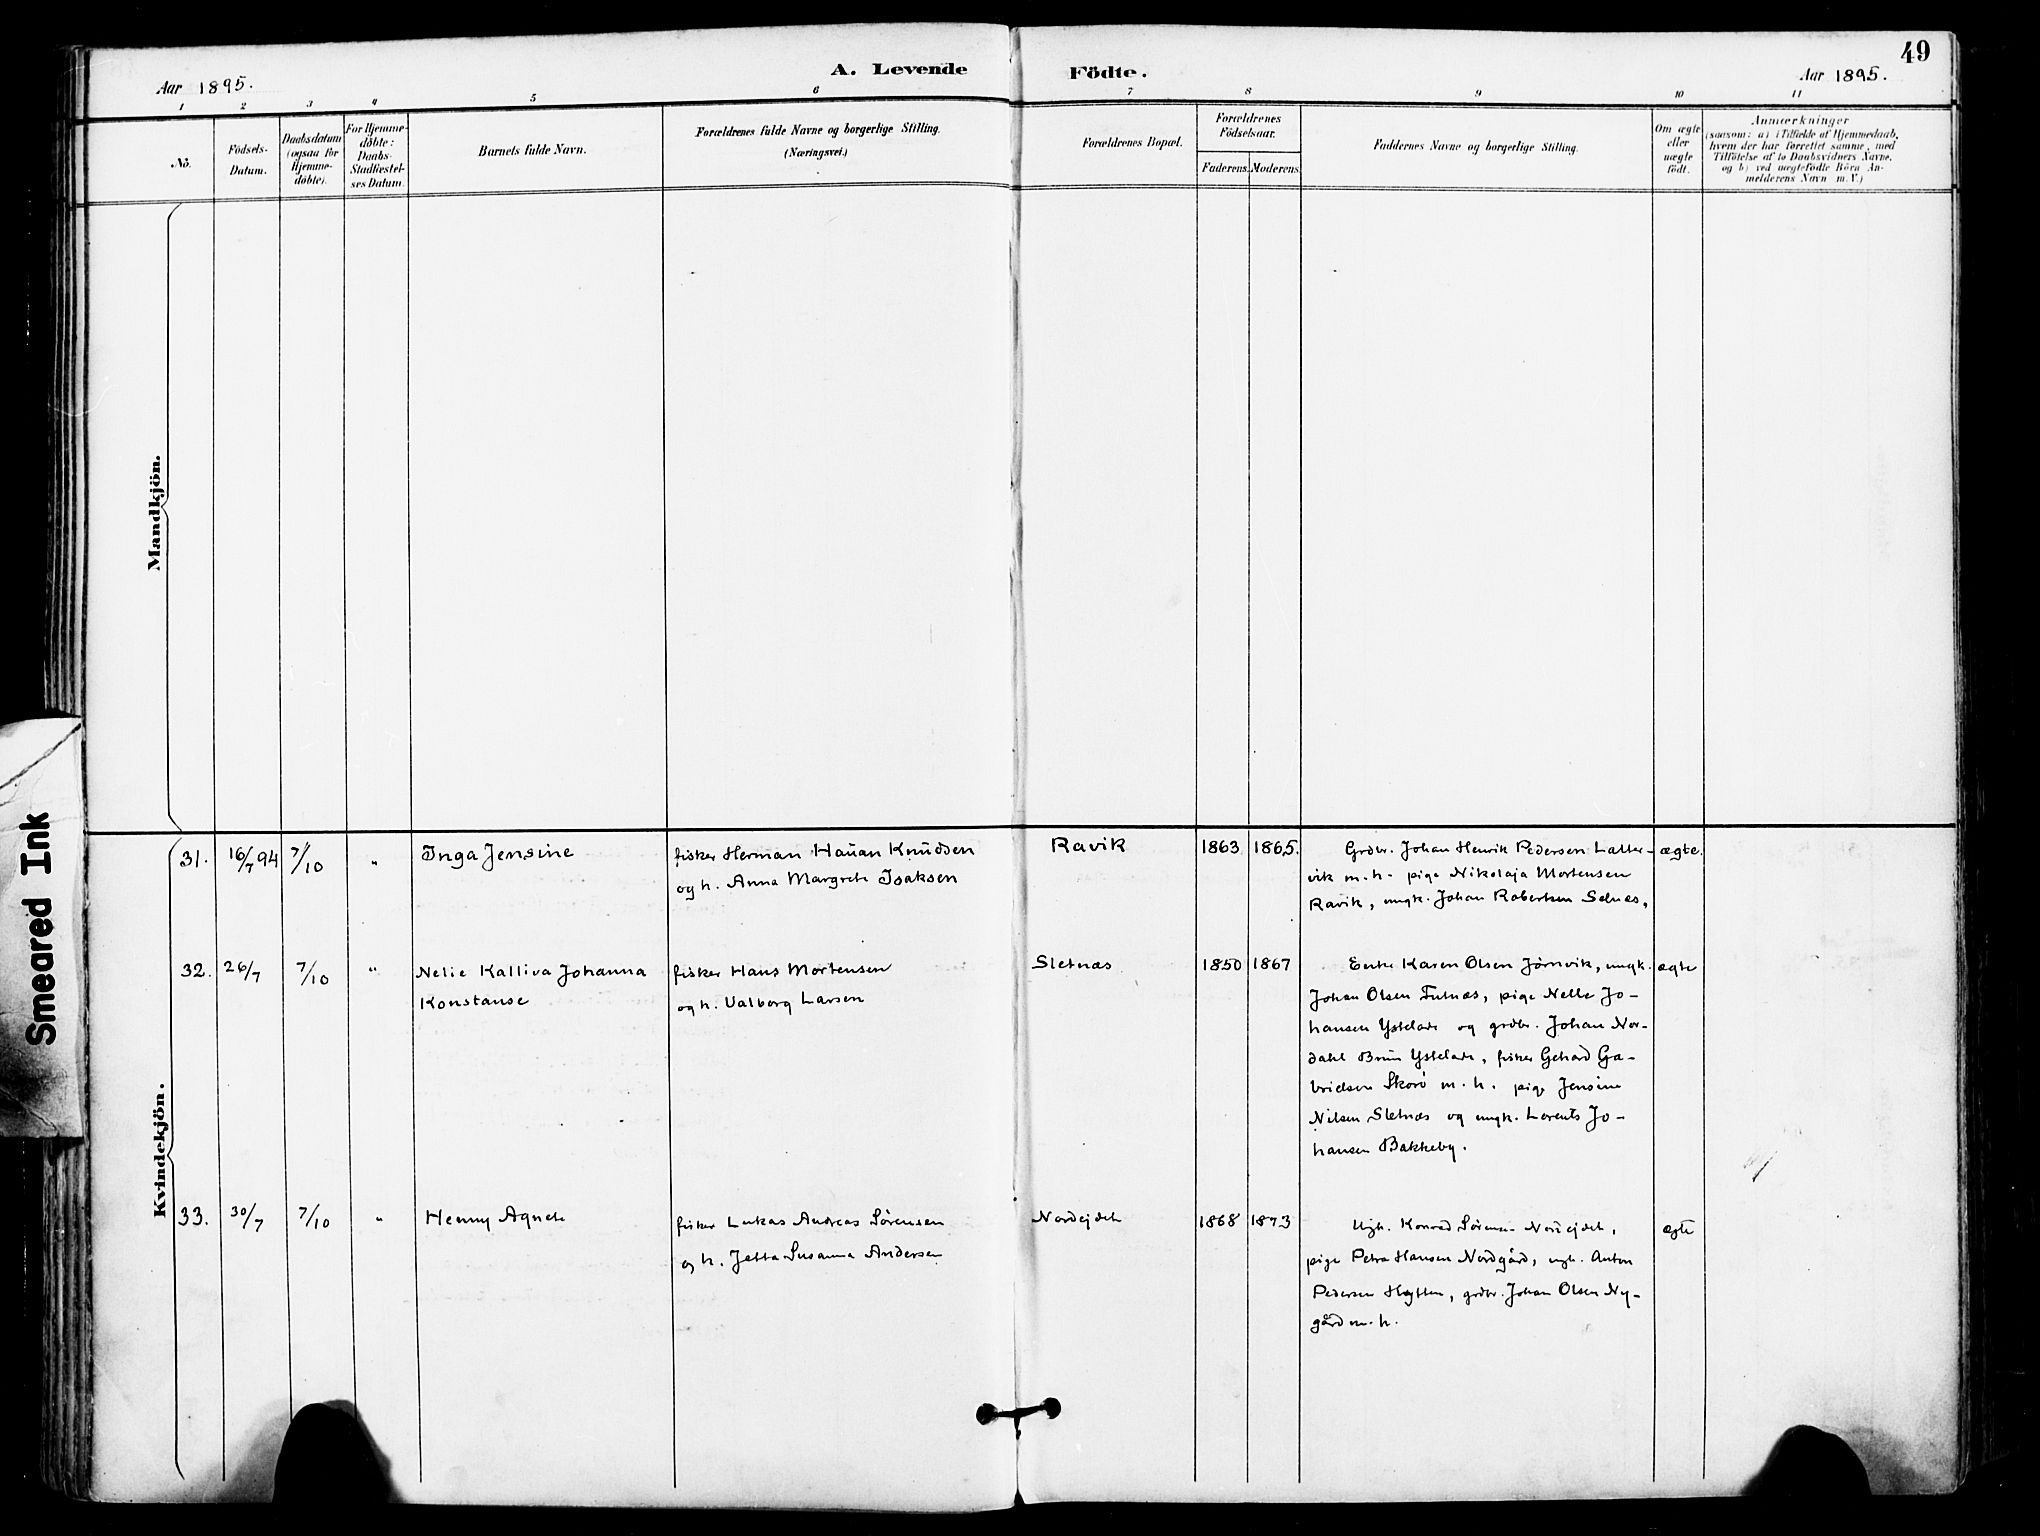 49
A. Levende Födte.
Aar 1895.
Aar 1895.
1 2 3 4 5 6 7 8 9 10 11
No.
Födsels-Datum.
Daabsdatum (ogsaa for Hjemme-döbte).
For Hjemme-döbte: Daabs-Stadfæstel-ses Datum.
Barnets fulde Navn.
Forældrenes fulde Navne og borgerlige Stilling.
(Næringsvei.)
Forældrenes Bopæl.
Forældrenes Födselsaar.
Faderens. Moderens.
Faddernes Navne og borgerlige Stilling.
Om ægte eller uægte födt.
Anmærkninger
(saasom: a) i Tilfælde af Hjemmedaab,
hvem der har forrettet samme, med
Tilföielse af to Daabsvidners Navne,
og b) ved uægtefödte Börn An-
melderens Navn m. V.)
Mandkjön.
Smeared Ink
Kvindekjön.
31. 16/7 94 7/10 " Inga Jensine
fisker Herman Hauan Knudsen
og h. Anna Margrete Isaksen
Ravik 1863 1865.
Grdbr. Johan Henrik Pedersen Latter-
vik m. h. pige Nikolaja Mortensen
Ravik, ungk. Johan Robertsen Selnæs,
ægte.
32. 26/7 7/10 " Nelie Kalliva Johanna
Konstanse
fisker Hans Mortensen
og h. Valborg Larsen
Sletnæs 1850 1867
Enke Karen Olsen Jørnvik, ungk.
Johan Olsen, pige Nelle Jo-
hansen og grdbr. Johan Nor-
dahl Brun, fisker Gehard Ga-
brielsen Skorö m. h. pige Jensine
Nilsen Sletnæs og ungk. Lorents Jo-
hansen Bakkeby.
ægte
33. 30/7 7/10 " Henny Agnete
fisker Lukas Andreas Sørensen
og h. Jetta Susanna Andersen
Nordejdet 1868 1873
Ugk. Konrad Sørensen Nordejdet,
pige Petra Hansen Nordgård, ugk. Anton
Pedersen, grdbr. Johan Olsen Ny-
gård m. h.
ægte